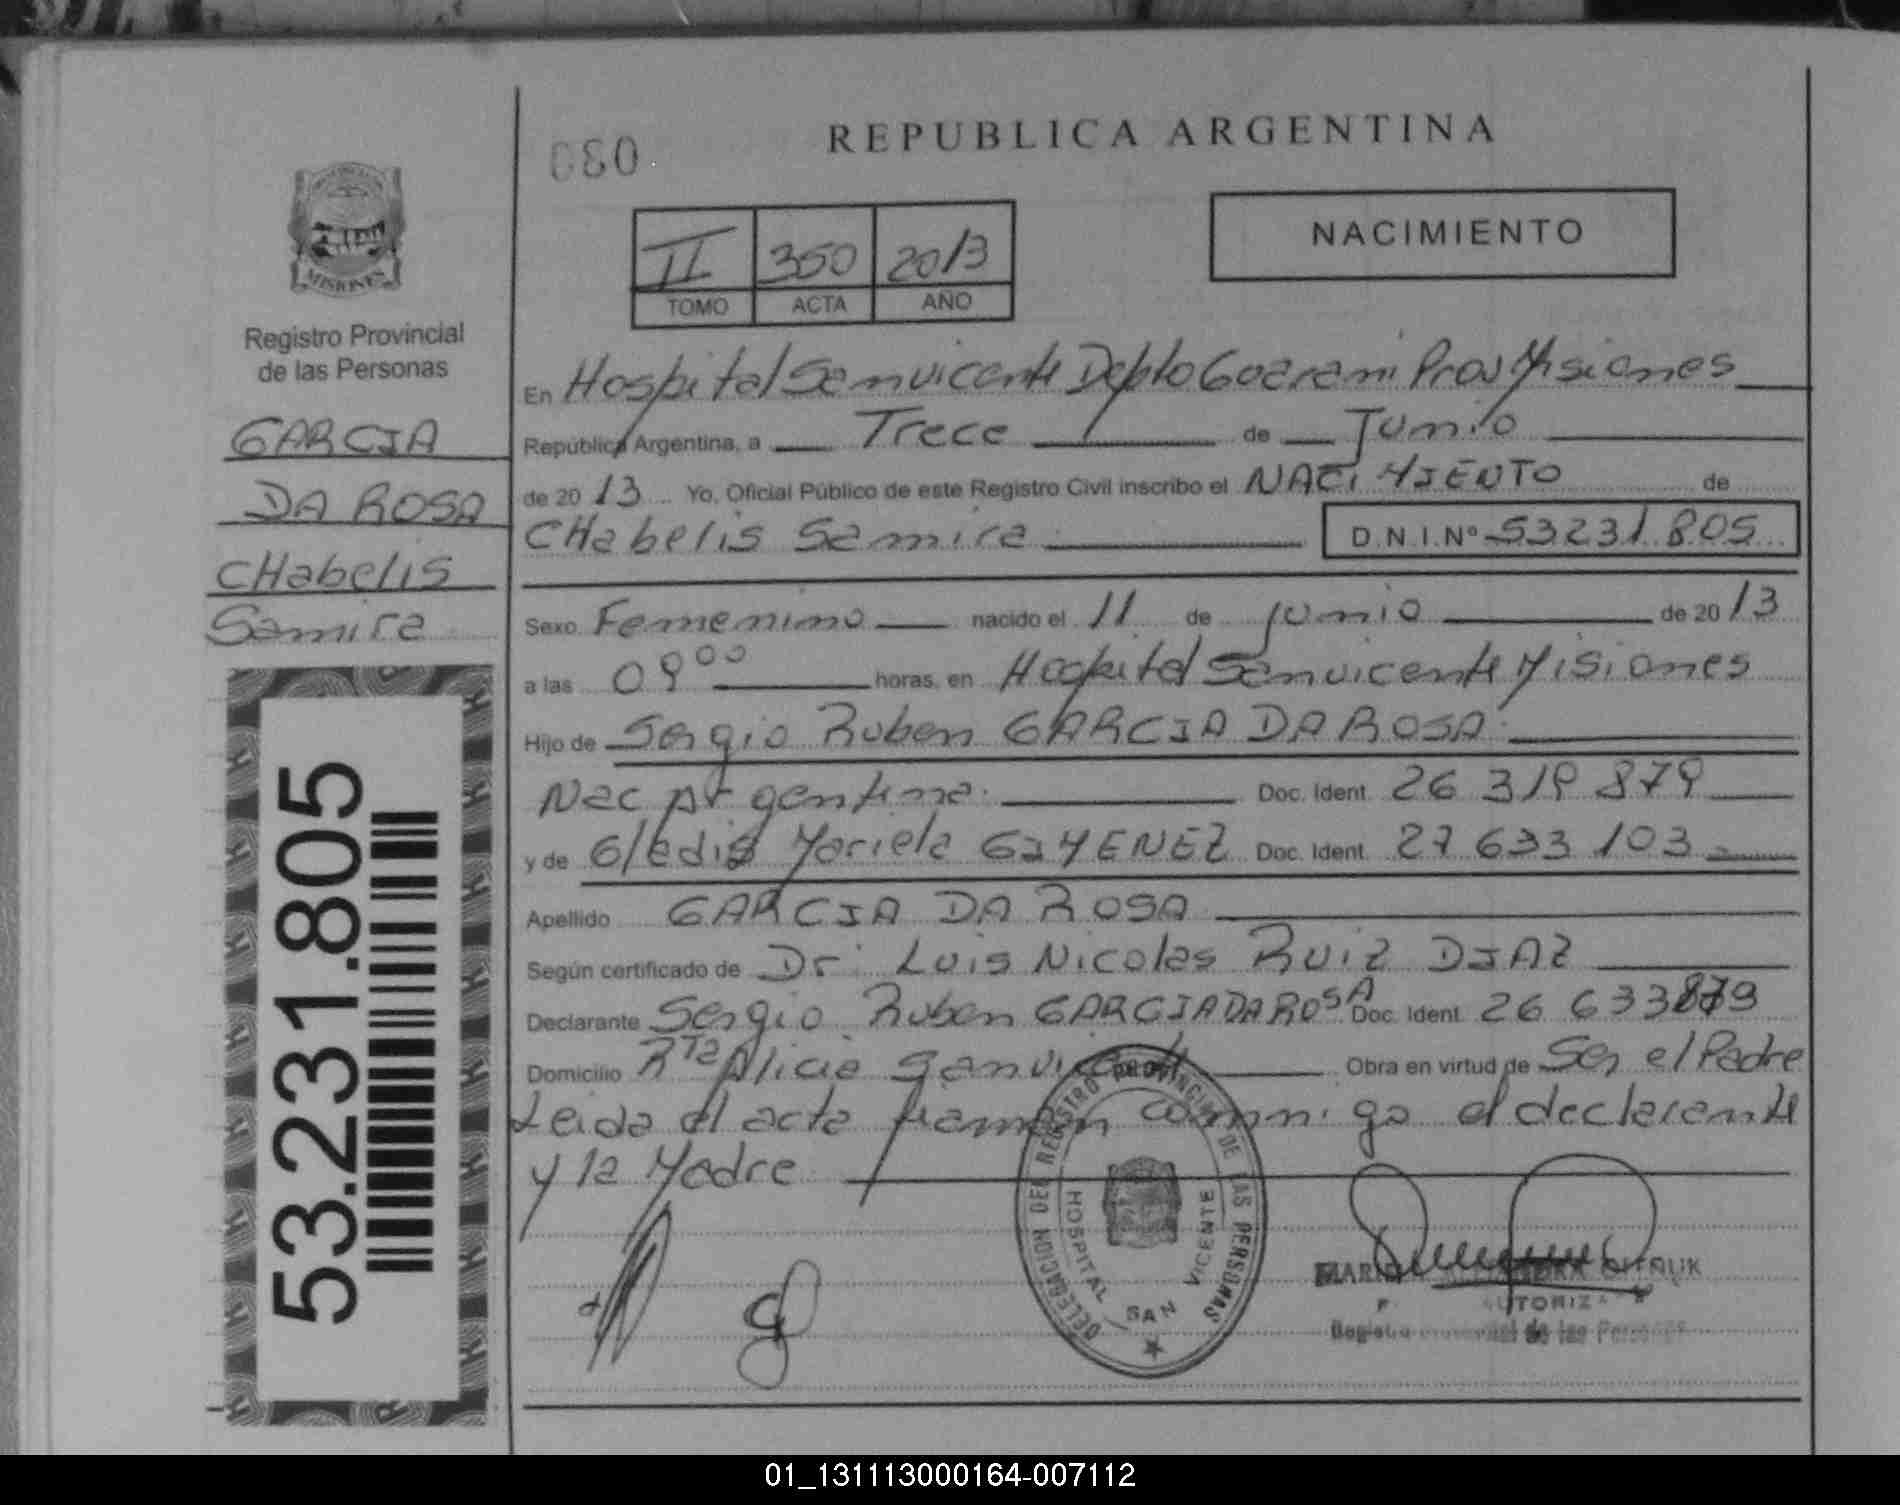 080
REPUBLICA ARGENTINA
MISIONES
Registro Provincial
de las Personas
GARCIA
DA ROSA
CHabelis
Samira
53.231.805
II 350 2013
TOMO ACTA AÑO
NACIMIENTO
En Hospital Sanvicente Depto Guarani Prov Misiones
República Argentina, a Trece de Junio
de 20 13 Yo, Oficial Público de este Registro Civil inscribo el NACIMIENTO de
CHabelis Samira D.N.I.Nº 53231805
Sexo Femenino nacido el 11 de junio de 20 13
a las 09 00 horas, en Hospital Sanvicente Misiones
Hijo de Sergio Ruben GARCIA DA ROSA
Nac Argentina Doc. Ident. 26 319 879
y de Gladis Mariela GIMENEZ Doc. Ident. 27 633 103
Apellido GARCIA DA ROSA
Según certificado de Dr. Luis Nicolas Ruiz DIAZ
Declarante Sergio Ruben GARCIA DA ROSA Doc. Ident. 26 633
Domicilio Rta Alicia Sanvicente Obra en virtud de Ser el Padre
Leida el acta firman conmigo el declarante
y la Madre
DELEGACION DEL REGISTRO PROVINCIAL DE LAS PERSONAS
HOSPITAL SAN VICENTE
Registro Provincial de las Personas
01_131113000164-007112